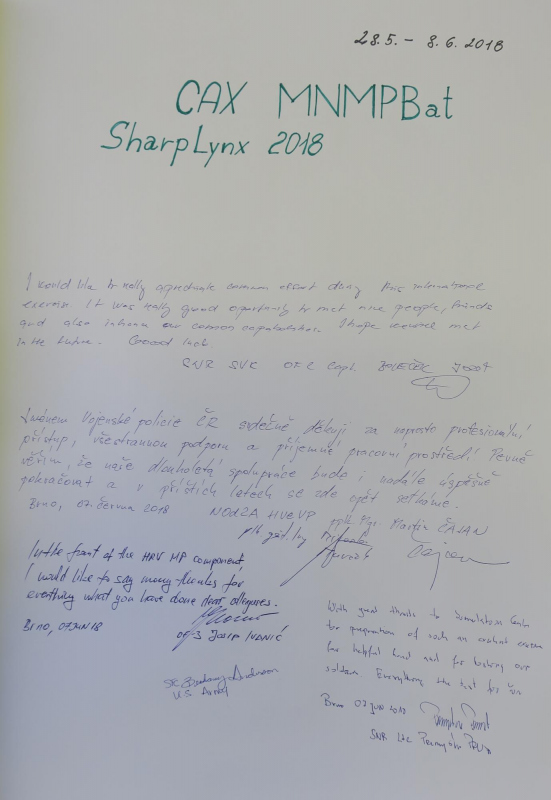 28.5. – 8.6. 2018
CAX MNMPBat
SharpLynx 2018
I would like to really appreciate common effort during this international
exercise. It was really good oportunity to met nice people, friends
and also our common I hope we met
in the future. Good luck
SNR SVK OF2 Capt.
Jménem Vojenské policie ČR srdečně děkuji za naprosto profesionální
přístup, všestrannou podporu a příjemné pracovní prostředí. Pevně
věřím, že naše dlouholetá spolupráce bude i nadále úspěšně
pokračovat a v příštích letech se zde opět setkáme.
Brno, 07. června 2018 HVeVP pplk. Mgr. Martin ČAJAN
In the front of the HRV MP component,
I would like to say many thanks for
everthing what you have done dear
Brno, 07JUN18
OF-3 Josip IVANIĆ
US Army
With great thanks to Simulation Centre
for preparation of such an excelent exercise
for helpful hand and for looking our
soldiers. Everything the best for
Brno 07 JUN 2018
SNR